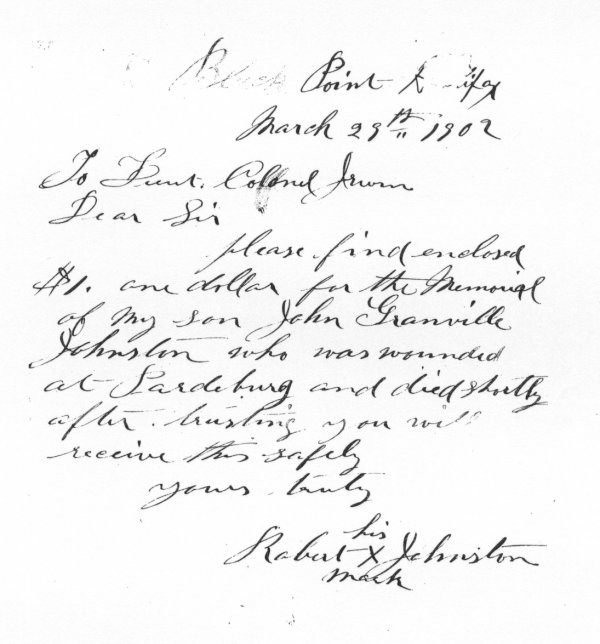 Black Point
March 29th 1902
To Lieut. Colonel Irwin
Dear Sir
please find enclosed
$1. one dollar for the Memorial
of my son John Granville
Johnston who was wounded
at Pardeburg and died shortly
after. trusting you will
receive this safely
yours truly
his
Robert X Johnston
mark